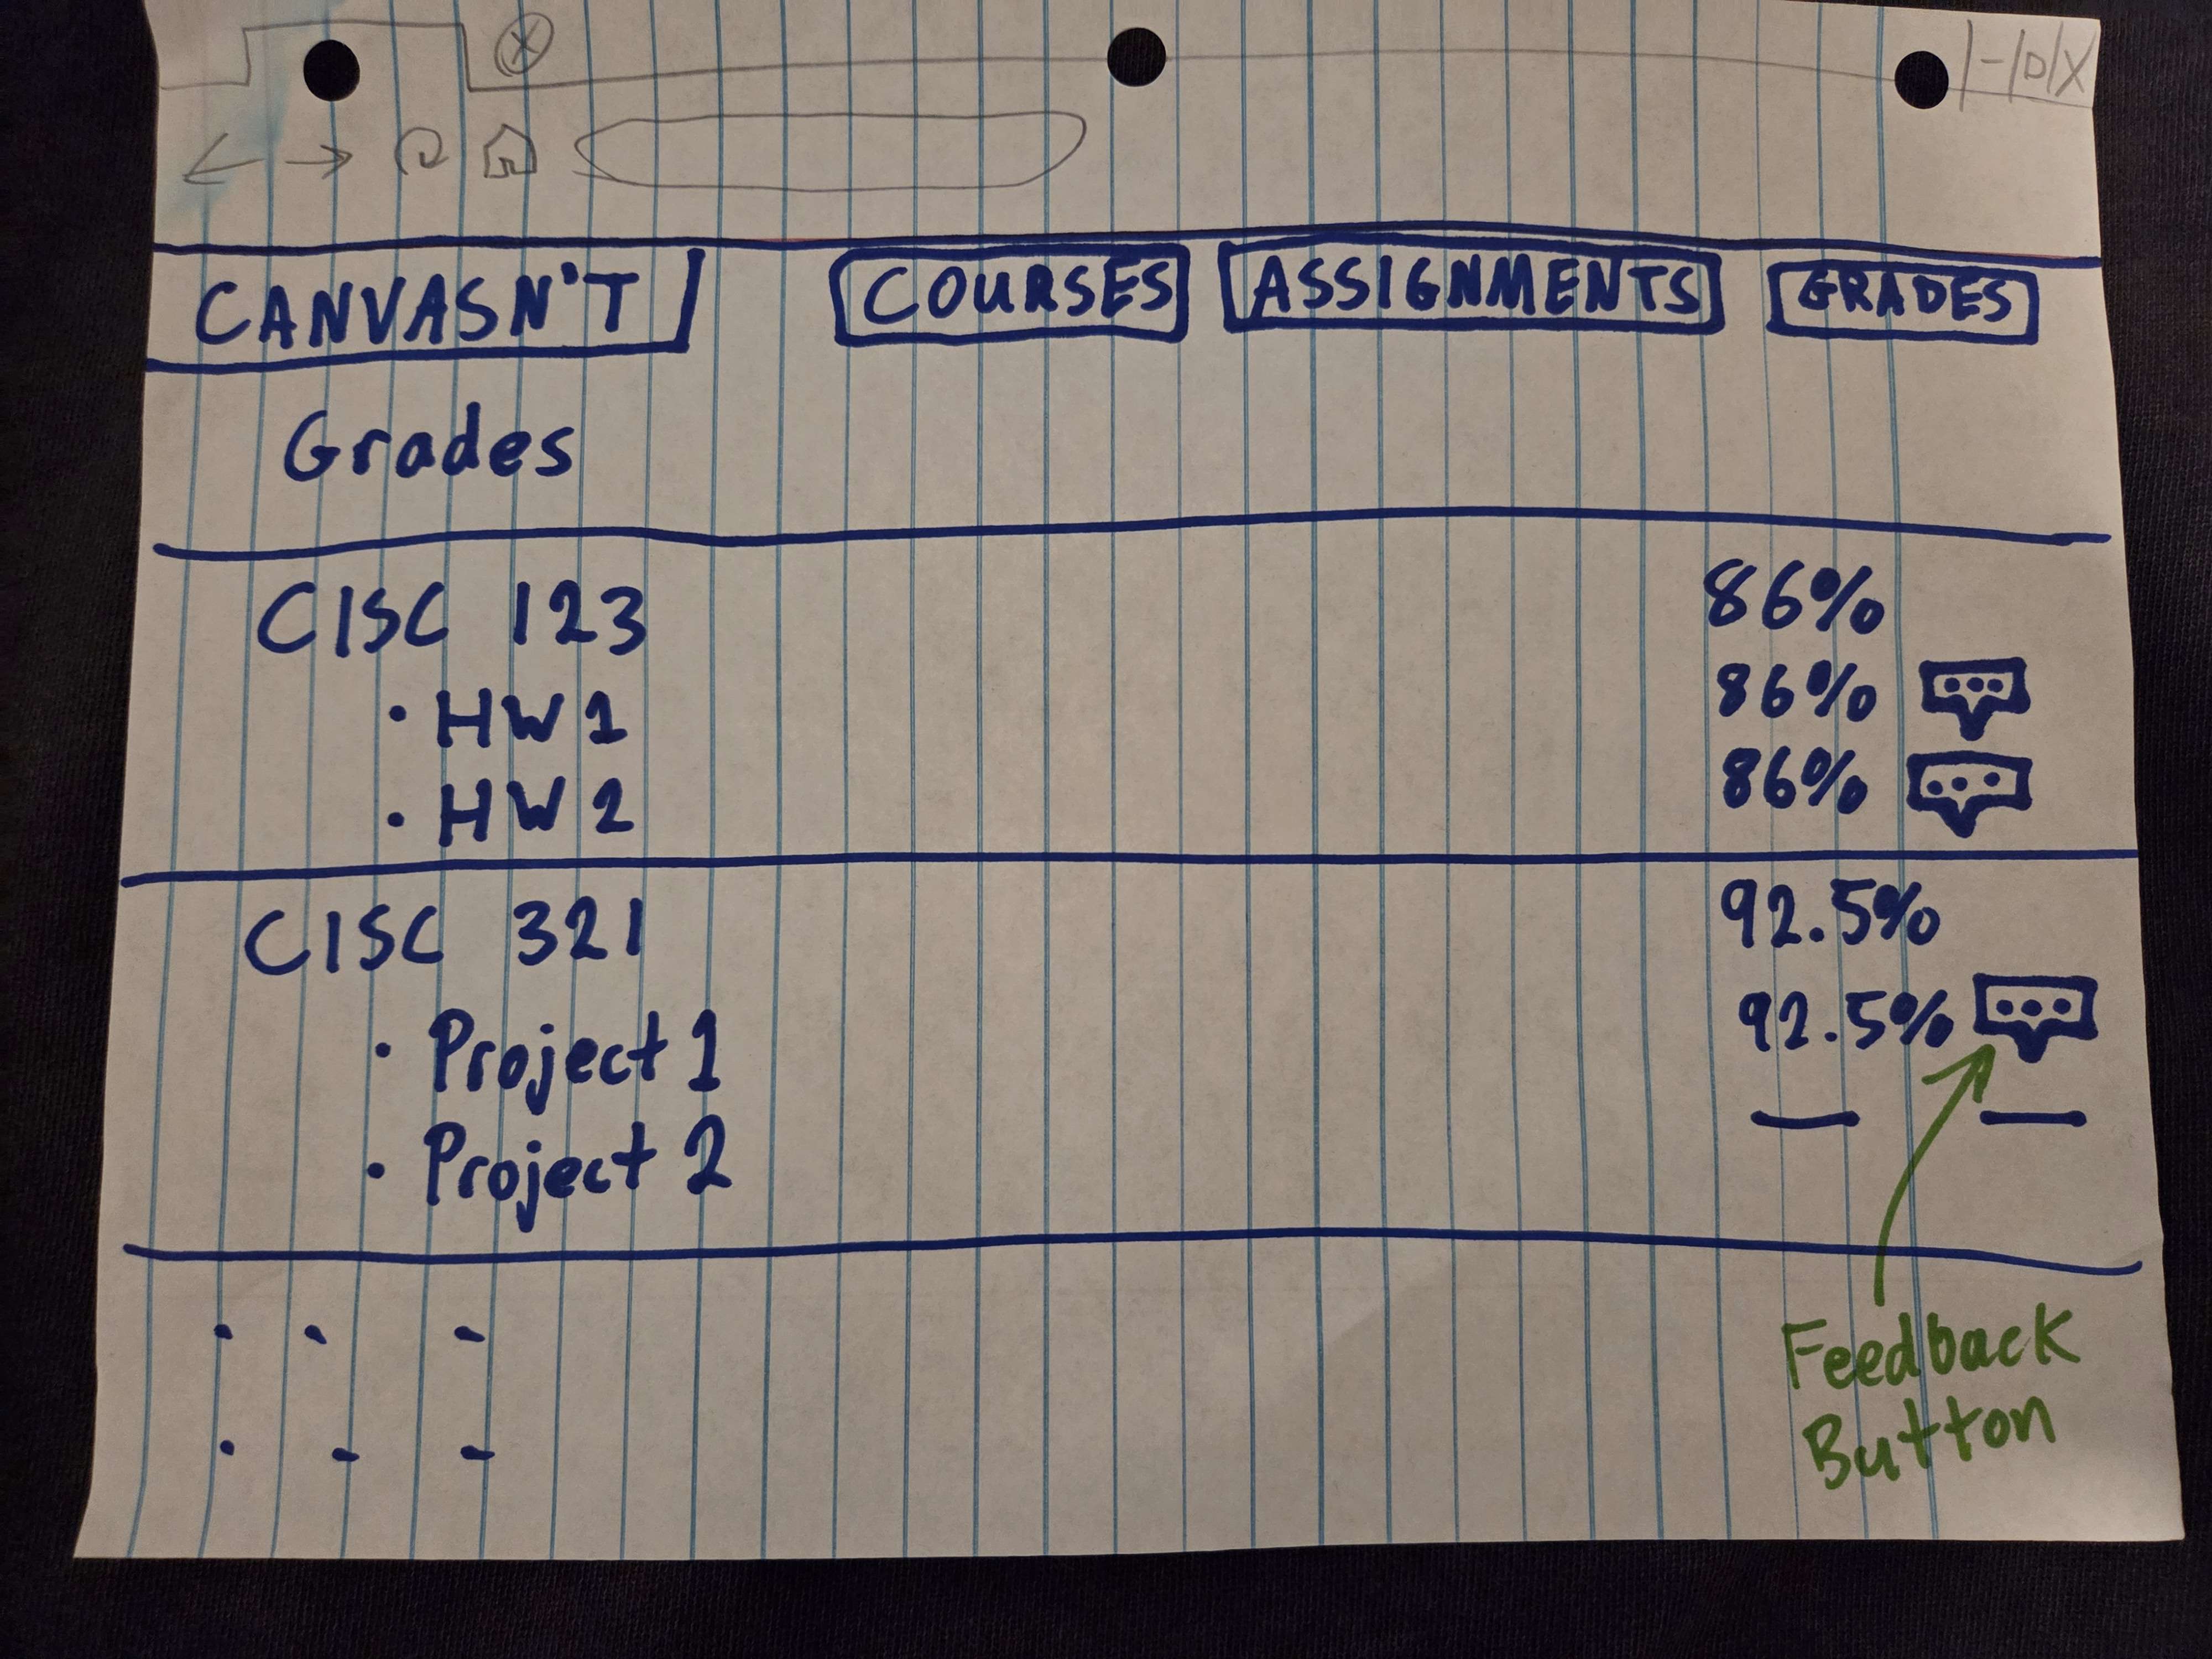 CANVASN'T COURSES ASSIGNMENTS GRADES
Grades
CISC 123 86%
• HW 1 86%
• HW 2 86%
CISC 321 92.5%
• Project 1 92.5%
• Project 2 — —
Feedback
Button